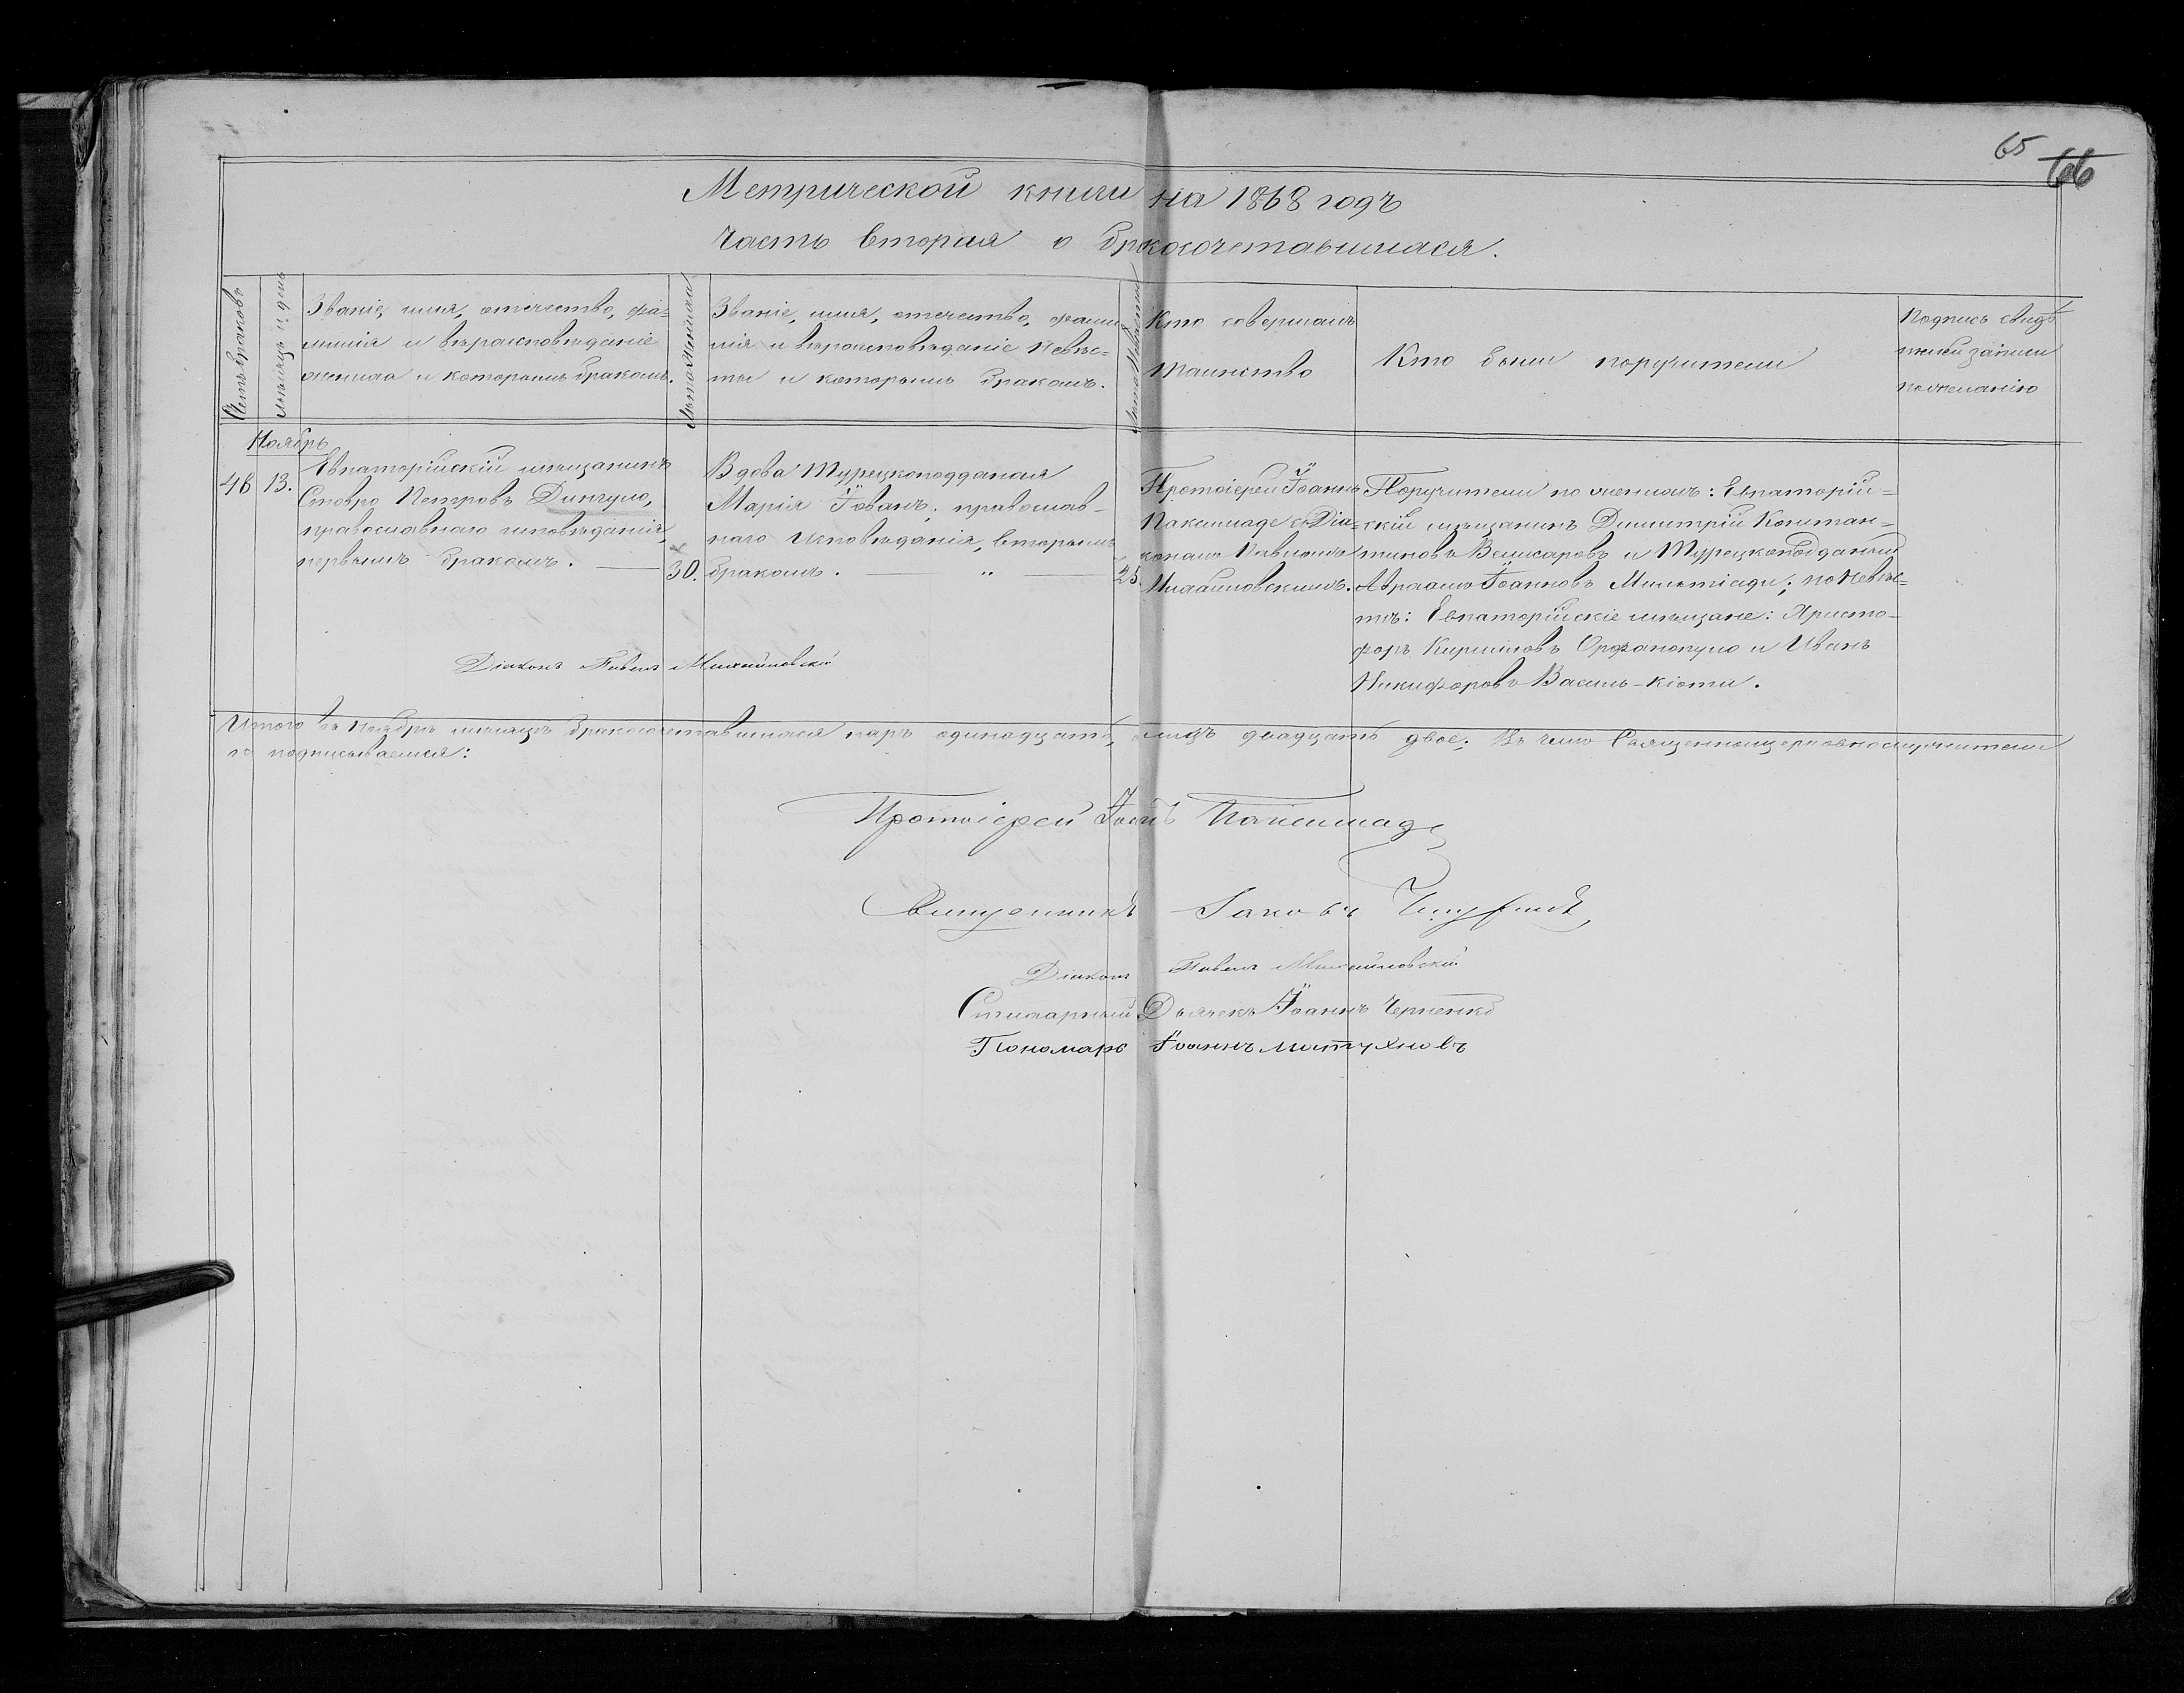 65 66
Метрической книги на 1868 годъ
Часть вторая о бракосочетавшихся.
Счетъ браковъ
Мѣсяцъ и день
Званіе, имя, отечество, фа-
милія и вѣроисповѣданіе
жениха и которымъ бракомъ.
Лѣта жениха
Званіе, имя, отечество, фами
лія и вѣроисповѣданіе невѣс-
ты и которымъ бракомъ.
Лѣта невѣсты
Кто совершалъ
таинство
Кто были поручители
Подпись свидѣ
телей записи
по желанію
Ноябрь
46 13.
Евпаторійскій мѣщанинъ
Ставро Петровъ Дингуло,
православнаго исповѣданія,
первымъ бракомъ.
30.
Вдова Турецкоподданая
Марія Іованъ, православ-
наго исповѣданія, вторымъ
бракомъ. „
25.
Протоіерей Іоаннъ
Паксимаде съ Діа-
кономъ Павломъ
Поручители по женихѣ: Евпаторій-
скій мѣщанинъ Димитрій Констан-
тиновъ Велисаровъ и Турецкоподданый
Авраамъ Іоанновъ Мильтіади; по невѣс-
тѣ: Евпаторійскіе мѣщане: Христо-
форъ Кириловъ Орфанопуло и Иванъ
Никифоровъ Василь-кіоти.
Діаконъ Павелъ Михайловскій
Итого въ Ноябрѣ мѣсяцѣ бракосочетавшихся паръ одинадцать, лицъ двадцать двое. Въ чемъ Священноцерковнослужители
подписываемся:
Протоіерей Іоаннъ Паксимаде
Священникъ Іаковъ
Діаконъ Павелъ Михайловскій
Стихарный Дьячекъ Іоаннъ Черненко
Пономарь Іоаннъ Матухновъ